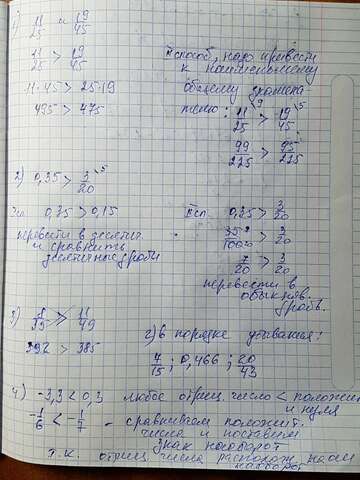 1) 11/25 и 19/45
11/25 > 19/45
11·45 > 25·19
495 > 475
II способ, надо привести
к наименьшему
общему знамена
телю: 11/25 ^9 > 19/45 ^5
99/225 > 95/225
2) 0,35 > 3/20 ^5
0,35 > 0,15
перевести в десятич.
и сравнить
десятичные дроби
II сп. 0,35 > 3/20
35/100 > 3/20
7/20 > 3/20
перевести в
обыкнов.
дробь.
3)
392 > 385
2) в порядке убывания:
7/15; 0,466; 20/43
4) -3,3 < 0,3 любое отриц. число < положит
и нуля
-1/6 < -1/7 - сравниваем положит.
числа и поставим
знак наоборот
т.к. отриц числа располож на оси
наоборот